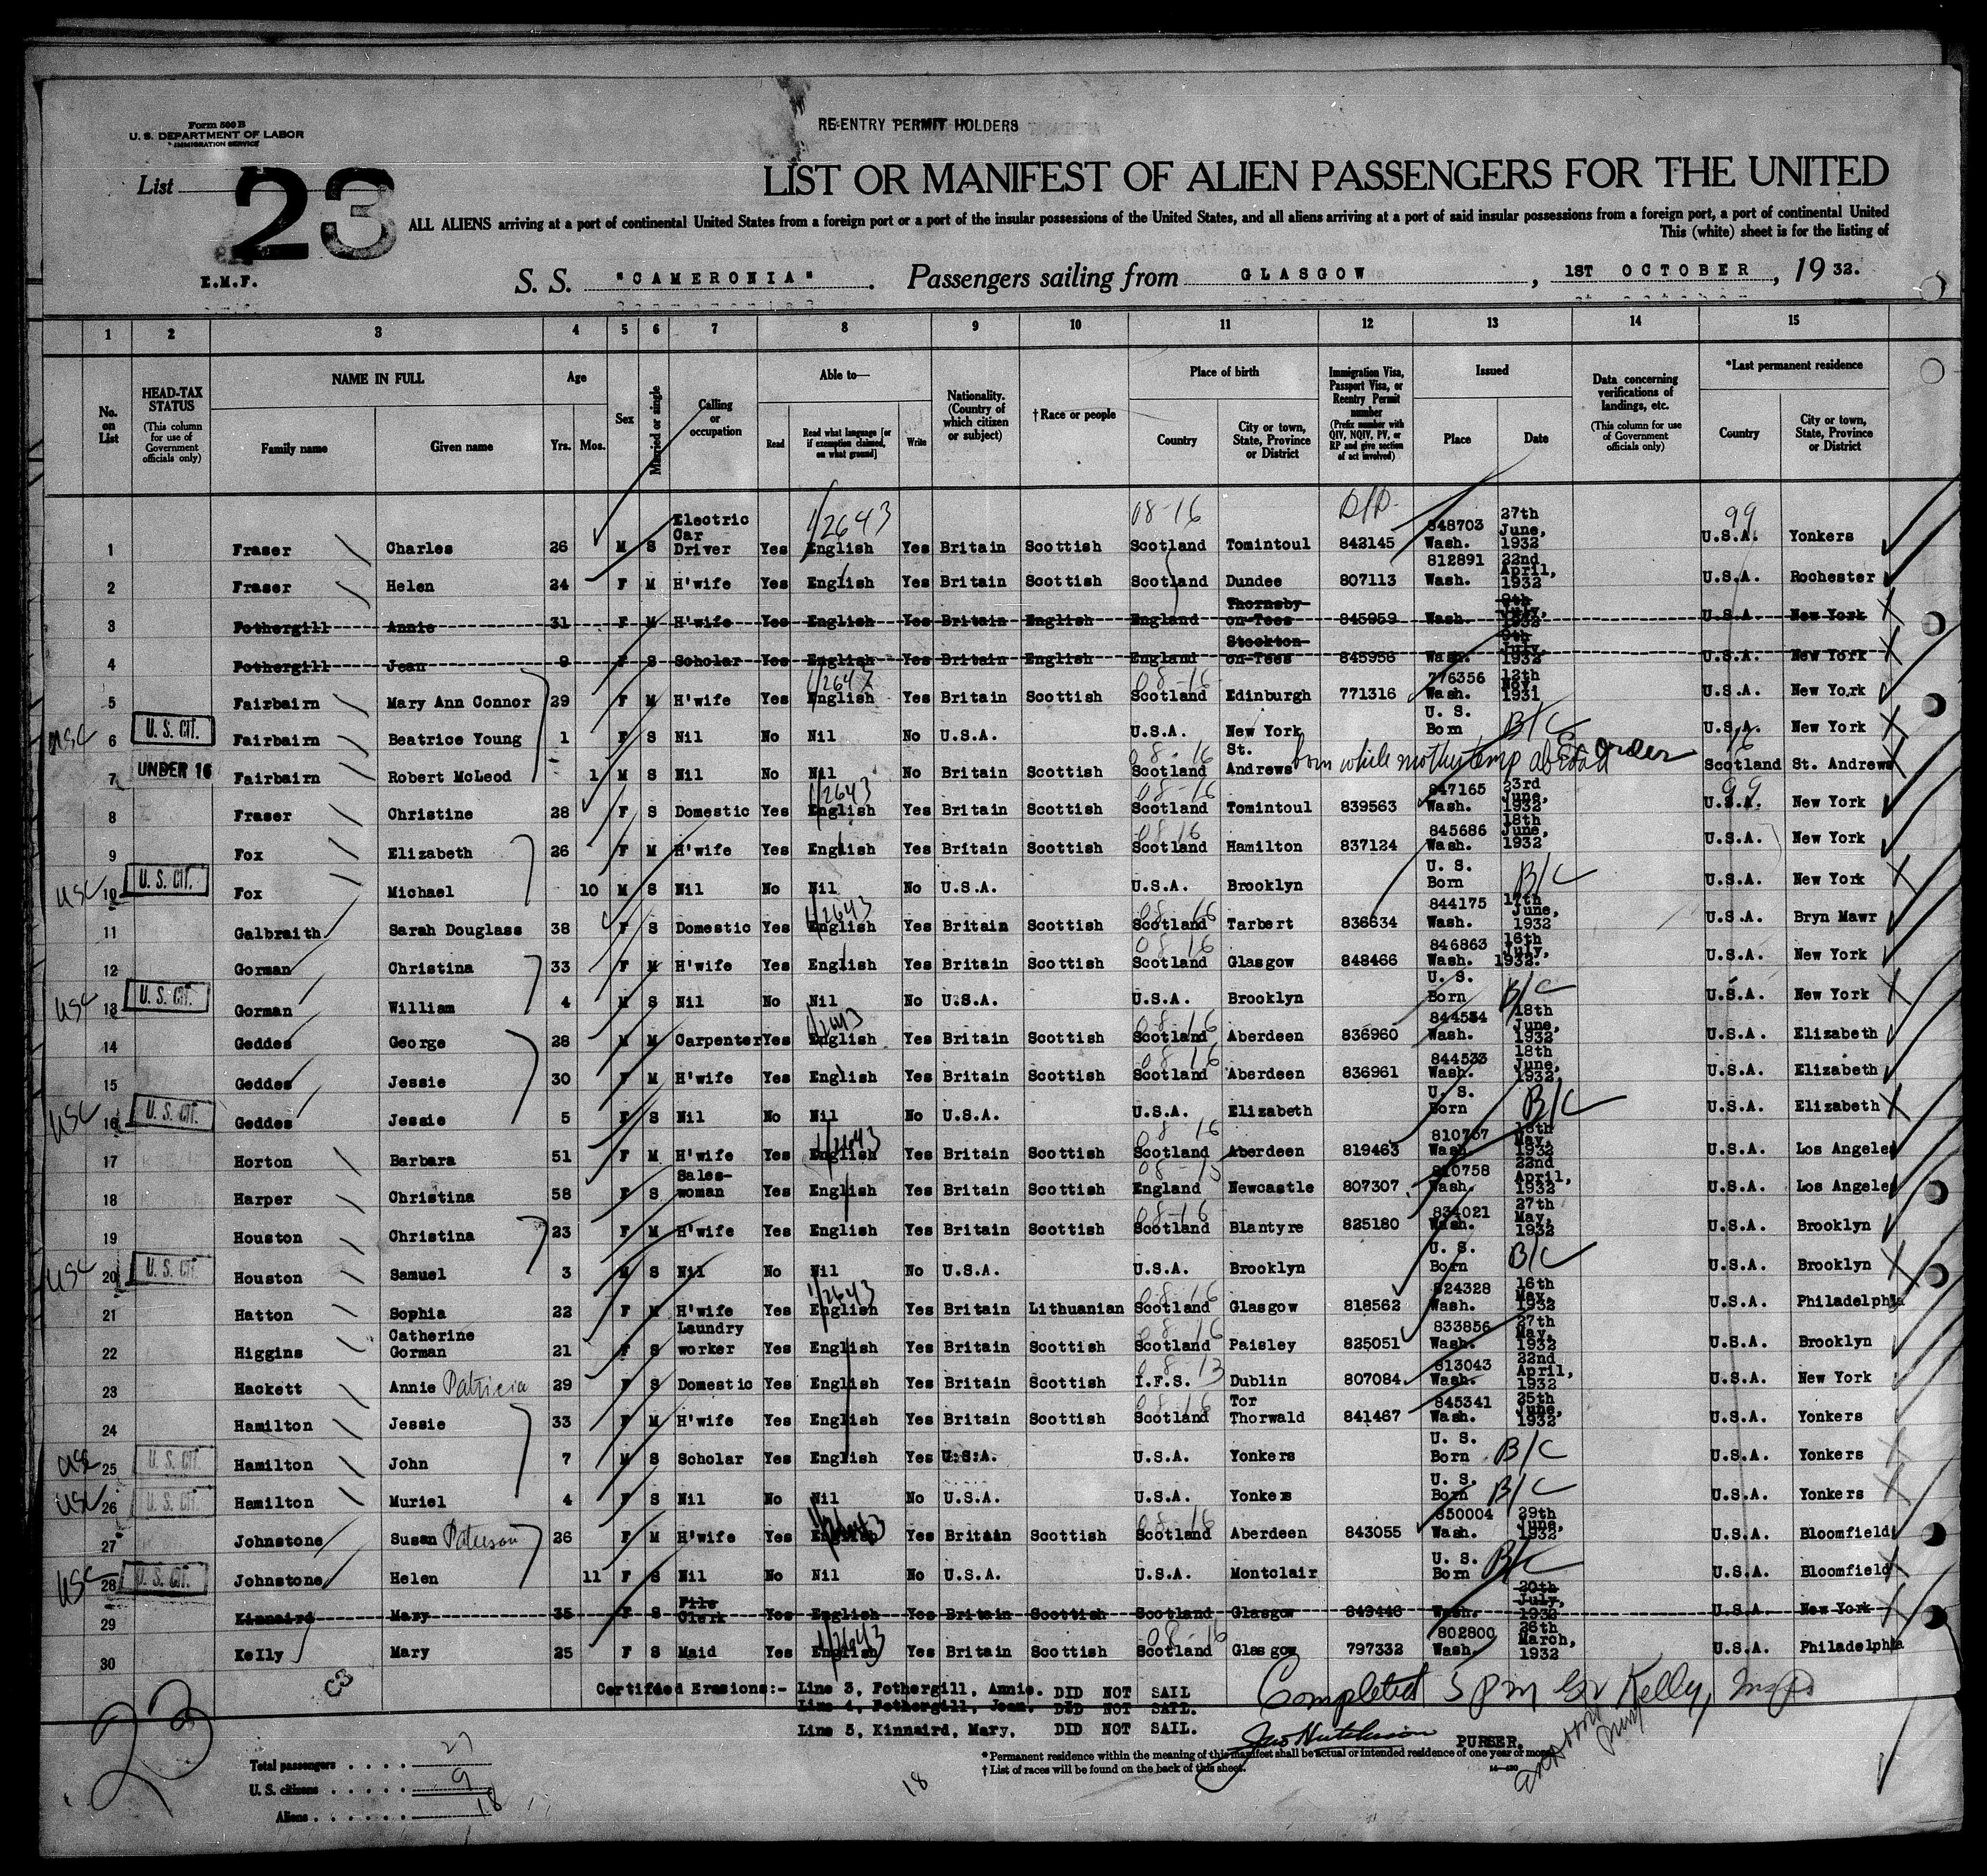 Form 500 B
U. S. DEPARTMENT OF LABOR
IMMIGRATION SERVICE
RE-ENTRY PERMIT HOLDERS
List 23
LIST OR MANIFEST OF ALIEN PASSENGERS FOR THE UNITED
ALL ALIENS arriving at a port of continental United States from a foreign port or a port of the insular possessions of the United States, and all aliens arriving at a port of said insular possessions from a foreign port, a port of continental United
This (white) sheet is for the listing of
E.M.F.
S. S. "CAMERONIA". Passengers sailing from GLASGOW, 1ST OCTOBER, 1932.
1 2 3 4 5 6 7 8 9 10 11 12 13 14 15
No. on List
HEAD-TAX STATUS (This column for use of Government officials only)
NAME IN FULL Family name Given name
Age Yrs. Mos.
Sex
Married or single
Calling or occupation
Able to— Read Read what language [or if exemption claimed, on what ground] Write
Nationality. (Country of which citizen or subject)
†Race or people
Place of birth Country City or town, State, Province or District
Immigration Visa, Passport Visa, or Reentry Permit number (Prefix number with QIV, NQIV, PV, or RP and give section of act involved)
Issued Place Date
Data concerning verifications of landings, etc. (This column for use of Government officials only)
*Last permanent residence Country City or town, State, Province or District
1 Fraser Charles 26 M S Electric Car Driver Yes English Yes Britain Scottish Scotland Tomintoul 842145 848703 Wash. 27th June, 1932 U.S.A. Yonkers
2 Fraser Helen 24 F M H'wife Yes English Yes Britain Scottish Scotland Dundee 807113 812891 Wash. 22nd April, 1932 U.S.A. Rochester
3 Fothergill Annie 31 F M H'wife Yes English Yes Britain English England Thornsby-on-Tees 845959 Wash. 9th July, 1932 U.S.A. New York
4 Fothergill Jean 9 F S Scholar Yes English Yes Britain English England Stockton-on-Tees 845956 Wash. 9th July, 1932 U.S.A. New York
5 Fairbairn Mary Ann Connor 29 F M H'wife Yes English Yes Britain Scottish Scotland Edinburgh 771316 776356 Wash. 12th 1931 U.S.A. New York
USC 6 U. S. CIT. Fairbairn Beatrice Young 1 F S Nil No Nil No U.S.A. U.S.A. New York U. S. Born B/C U.S.A. New York
7 UNDER 16 Fairbairn Robert McLeod 1 M S Nil No Nil No Britain Scottish Scotland St. Andrews born while mother temp abroad Scotland St. Andrews
8 Fraser Christine 28 F S Domestic Yes English Yes Britain Scottish Scotland Tomintoul 839563 847165 Wash. 23rd June, 1932 U.S.A. New York
9 Fox Elizabeth 26 F M H'wife Yes English Yes Britain Scottish Scotland Hamilton 837124 845686 Wash. 18th June, 1932 U.S.A. New York
USC 10 U. S. CIT. Fox Michael 10 M S Nil No Nil No U.S.A. U.S.A. Brooklyn U. S. Born B/C U.S.A. New York
11 Galbraith Sarah Douglass 38 F S Domestic Yes English Yes Britain Scottish Scotland Tarbert 836634 844175 Wash. 17th June, 1932 U.S.A. Bryn Mawr
12 Gorman Christina 33 F M H'wife Yes English Yes Britain Scottish Scotland Glasgow 848466 846863 Wash. 16th July, 1932. U.S.A. New York
USC 13 U. S. CIT. Gorman William 4 M S Nil No Nil No U.S.A. U.S.A. Brooklyn U. S. Born B/C U.S.A. New York
14 Geddes George 28 M M Carpenter Yes English Yes Britain Scottish Scotland Aberdeen 836960 844534 Wash. 18th June, 1932 U.S.A. Elizabeth
15 Geddes Jessie 30 F M H'wife Yes English Yes Britain Scottish Scotland Aberdeen 836961 844533 Wash. 18th June, 1932 U.S.A. Elizabeth
USC 16 U. S. CIT. Geddes Jessie 5 F S Nil No Nil No U.S.A. U.S.A. Elizabeth U. S. Born B/C U.S.A. Elizabeth
17 Horton Barbara 51 F M H'wife Yes English Yes Britain Scottish Scotland Aberdeen 819463 810757 Wash. 18th May, 1932 U.S.A. Los Angeles
18 Harper Christina 58 F S Sales-woman Yes English Yes Britain Scottish England Newcastle 807307 810758 Wash. 22nd April, 1932 U.S.A. Los Angeles
19 Houston Christina 23 F M H'wife Yes English Yes Britain Scottish Scotland Blantyre 825180 834021 Wash. 27th May, 1932 U.S.A. Brooklyn
USC 20 U. S. CIT. Houston Samuel 3 M S Nil No Nil No U.S.A. U.S.A. Brooklyn U. S. Born B/C U.S.A. Brooklyn
21 Hatton Sophia 22 F M H'wife Yes English Yes Britain Lithuanian Scotland Glasgow 818562 824328 Wash. 16th May, 1932 U.S.A. Philadelphia
22 Higgins Catherine Gorman 21 F S Laundry worker Yes English Yes Britain Scottish Scotland Paisley 825051 833856 Wash. 27th May, 1932 U.S.A. Brooklyn
23 Hackett Annie Patricia 29 F S Domestic Yes English Yes Britain Scottish I.F.S. Dublin 807084 813043 Wash. 22nd April, 1932 U.S.A. New York
24 Hamilton Jessie 33 F M H'wife Yes English Yes Britain Scottish Scotland Tor Thorwald 841467 845341 Wash. 25th June, 1932 U.S.A. Yonkers
25 U. S. CIT. Hamilton John 7 M S Scholar Yes English Yes U.S.A. U.S.A. Yonkers U. S. Born B/C U.S.A. Yonkers
USC 26 U. S. CIT. Hamilton Muriel 4 F S Nil No Nil No U.S.A. U.S.A. Yonkers U. S. Born B/C U.S.A. Yonkers
27 Johnstone Susan Paterson 26 F M H'wife Yes English Yes Britain Scottish Scotland Aberdeen 843055 850004 Wash. 29th June, 1932 U.S.A. Bloomfield
USC 28 U. S. CIT. Johnstone Helen 11 F S Nil No Nil No U.S.A. U.S.A. Montclair U. S. Born B/C U.S.A. Bloomfield
29 Kinnaird Mary 35 F S File Clerk Yes English Yes Britain Scottish Scotland Glasgow 849446 Wash. 20th July, 1932 U.S.A. New York
30 Kelly Mary 25 F S Maid Yes English Yes Britain Scottish Scotland Glasgow 797332 802800 Wash. 26th March, 1932 U.S.A. Philadelphia
Certified Erasions:- Line 3, Fothergill, Annie. DID NOT SAIL
Line 4, Fothergill, Jean. DID NOT SAIL.
Line 5, Kinnaird, Mary. DID NOT SAIL.
Completed 5 pm Kelly,
Jas Hutchison PURSER.
23
*Permanent residence within the meaning of this manifest shall be actual or intended residence of one year or more.
† List of races will be found on the back of this sheet.
Total passengers . . . . 27
U. S. citizens . . . . . 9
Aliens . . . . . . 18
18